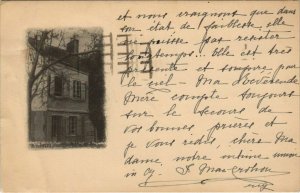 et nous craignons que dans
son état de faiblesse elle
ne puisse pas rester
longtemps. Elle est très
patiente et soupire par
le ciel. Ma Révérende
Mère compte toujours
sur le secours de
vos bonnes prières et
je vous redis, chère Ma
dame, notre intime union
in